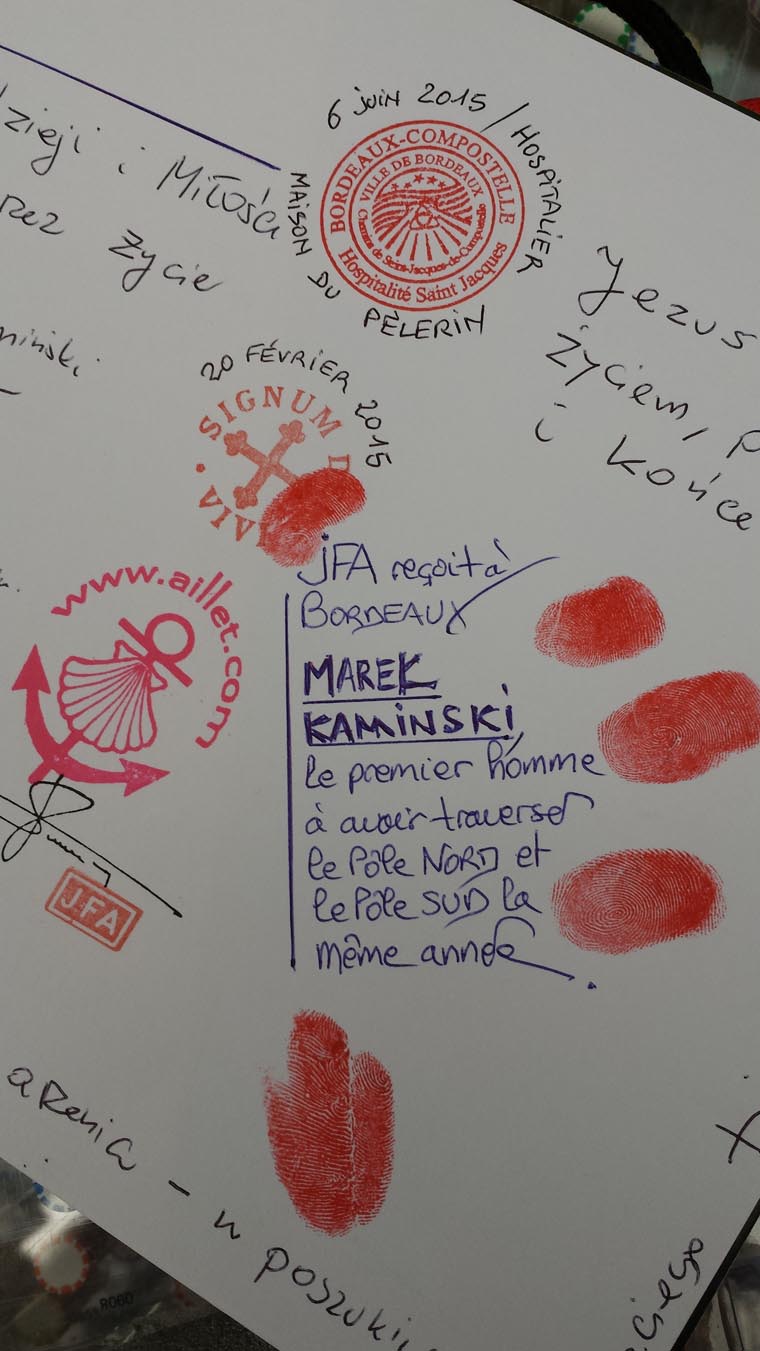 6 juin 2015 / HOSPITALIER
MAISON DU PÈLERIN
BORDEAUX-COMPOSTELLE
VILLE DE BORDEAUX
Chemins de Saint-Jacques-de-Compostelle
Hospitalité Saint Jacques
i Miłości
życie
Jezus
życiem,
i końce
20 FÉVRIER 2015
SIGNUM
VIA
www.aillet.com
JFA
JFA reçoit à
BORDEAUX
MAREK
KAMINSKI,
le premier homme
à avoir traversé
le Pôle NORD et
le Pôle SUD la
même année.
- w poszuki
ROBO